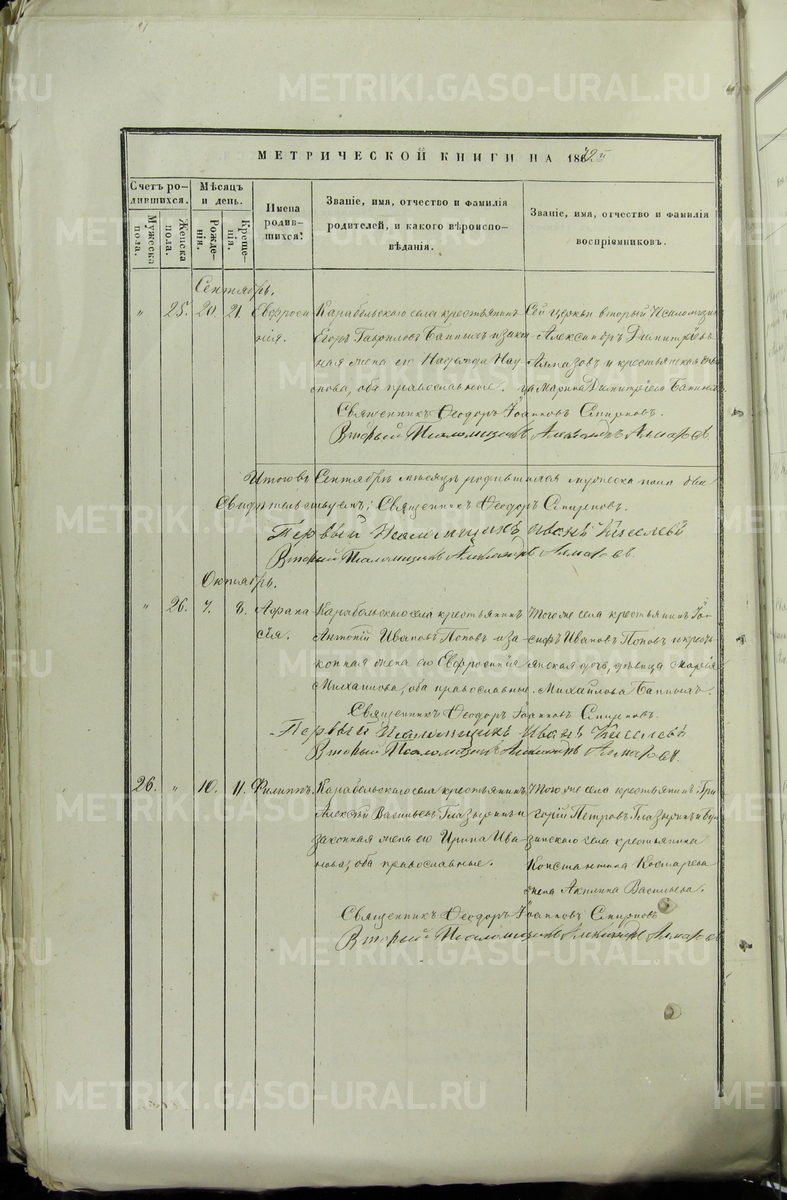 МЕТРИЧЕСКОЙ КНИГИ НА 1872й
Счетъ ро-
дившихся.
Мужеска
пола.
Женска
пола.
Мѣсяцъ
и день.
Рожде-
нія.
Креще-
нія.
Имена
родив-
шихся.
Званіе, имя, отчество и фамилія
родителей, и какого вѣроиспо-
вѣданія.
Званіе, имя, отчество и фамилія
воспріемниковъ.
Сентябрь.
" 25. 20. 21. Евфроси
нія.
Карабольскаго села крестьянинъ
Егоръ Гавриловъ и закон
ная жена его Надежда Нау
мова, оба православные.
Сей церкви вторый Псаломщик
Александръ Димитріевъ
Алмазовъ и крестьянская
Марина Димитріева
Священникъ Ѳеодоръ Іоанновъ Смирновъ.
Вторый Псаломщикъ Александръ Алмазовъ
Итого въ Сентябрѣ мѣсяцѣ родившихся мужеска пола два
Свидѣтельствуемъ: Священникъ Ѳеодоръ Смирновъ.
Первый Псаломщикъ Иванъ Киселевъ
Вторый Псаломщикъ Александръ Алмазовъ.
Октябрь.
" 26. 7. 8. Афана
сія.
Карабольскаго села крестьянинъ
Антоній Ивановъ Поповъ и за
конная жена его Евфросинія
Михайлова, оба православные.
Того же села крестьянинъ Іо
сифъ Ивановъ Поповъ и кресть
янская дочь, дѣвица Марія
Михайлова
Священникъ Ѳеодоръ Іоанновъ Смирновъ.
Первый Псаломщикъ Иванъ Киселевъ
Вторый Псаломщикъ Александръ Алмазовъ.
26. " 10. 11. Филиппъ.
Карабольскаго села крестьянинъ
Алексѣй Васильевъ Глазыринъ и
законная жена его Ирина Ива
нова, оба православные.
Того же села крестьянинъ Гри
горій Петровъ Глазыринъ и
села крестьянина
Константина Костарева
жена Акилина Васильева.
Священникъ Ѳеодоръ Іоанновъ Смирновъ
Вторый Псаломщикъ Александръ Алмазовъ
METRIKI.GASO-URAL.RU